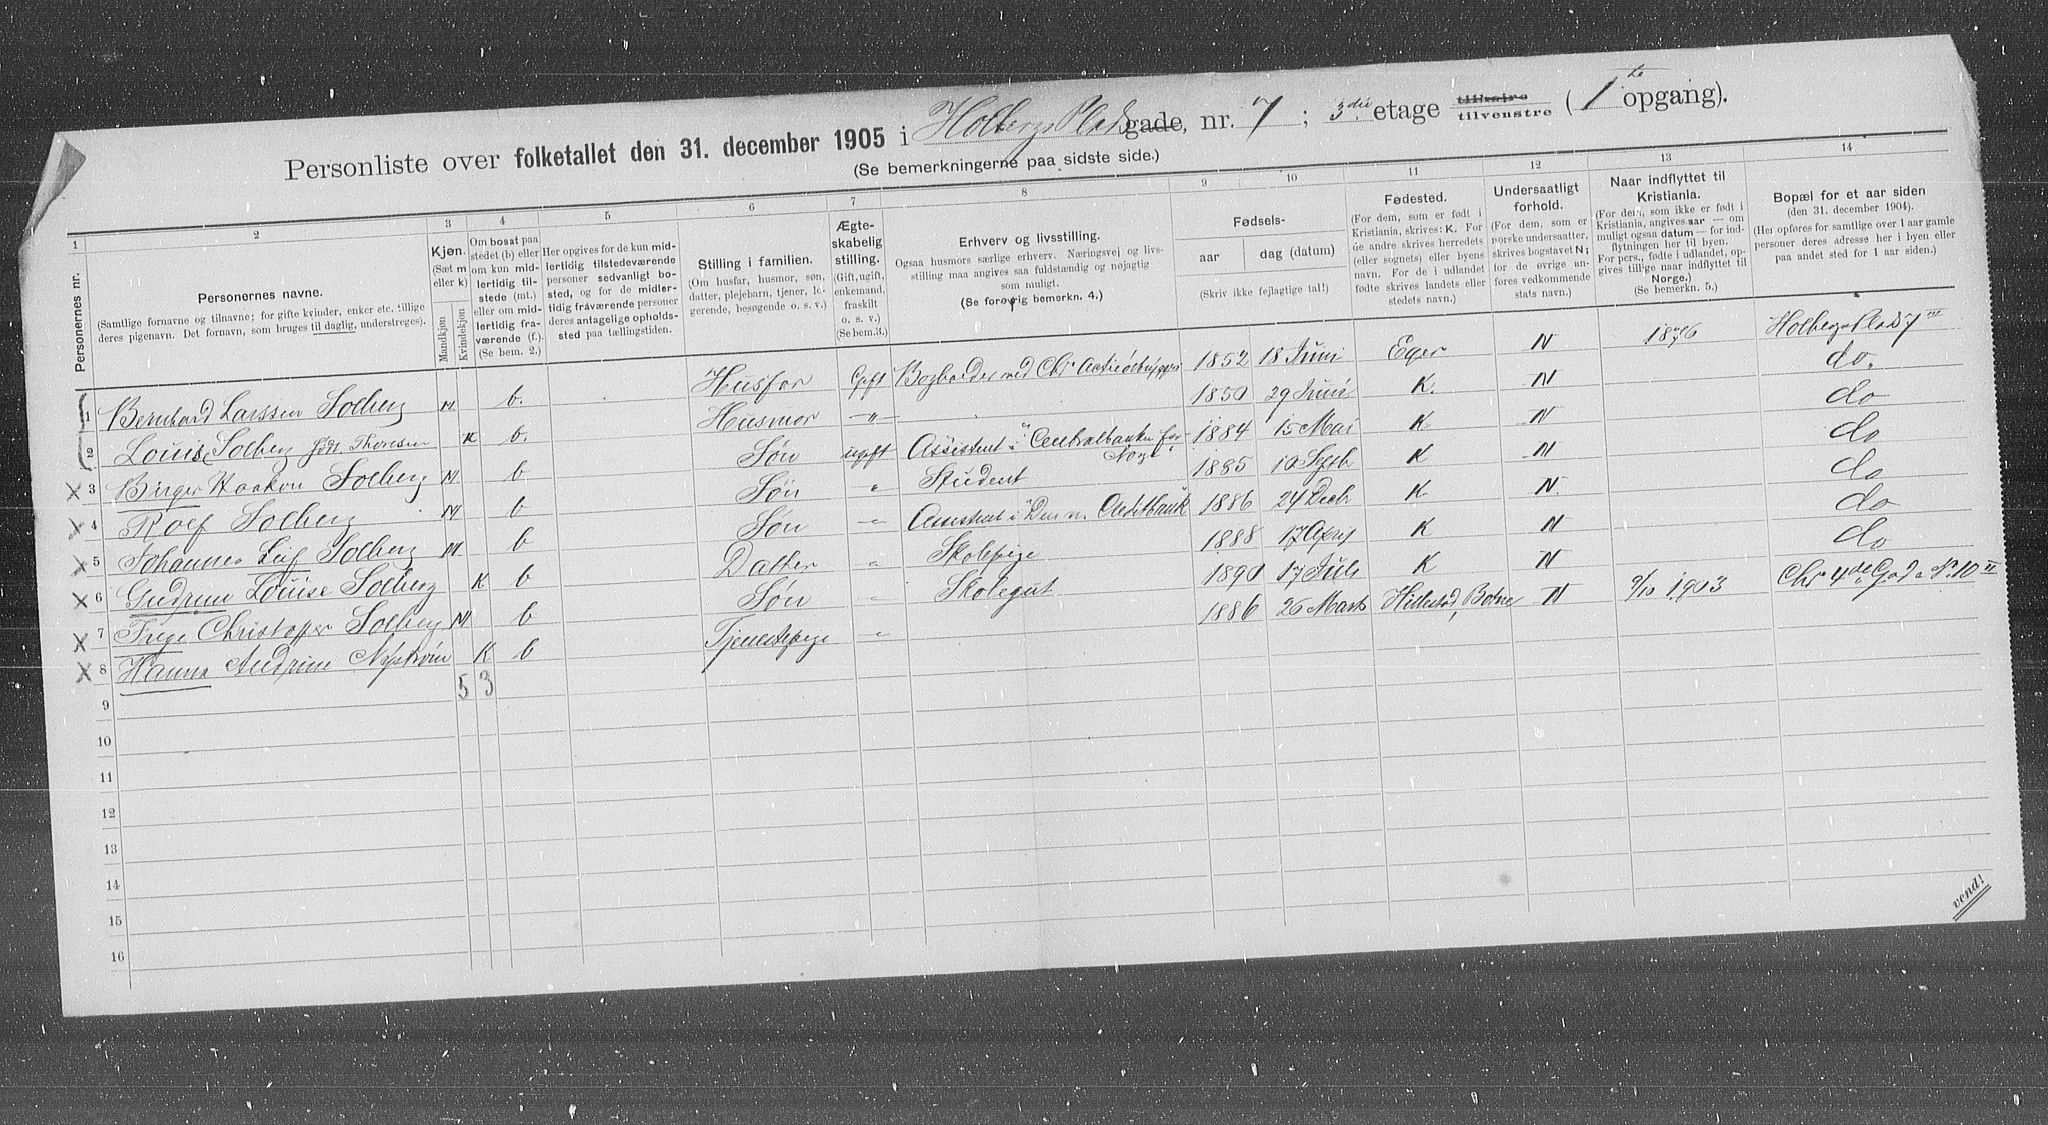 Personliste over folketallet den 31. december 1905 i Holbergs Plads gade, nr. 7; 3die etage tilhøire tilvenstre (1te opgang).
(Se bemerkningerne paa sidste side.)
1 2 3 4 5 6 7 8 9 10 11 12 13 14
Personernes nr.
Personernes navne.
(Samtlige fornavne og tilnavne; for gifte kvinder, enker etc. tillige
deres pigenavn. Det fornavn, som bruges til daglig, understreges).
Kjøn.
(Sæt m
eller k)
Mandkjøn
Kvindekjøn
Om bosat paa
stedet (b) eller
om kun mid-
lertidig til-
stede (mt.)
eller om mid-
lertidig fra-
værende (f.).
(Se bem. 2.)
Her opgives for de kun mid-
lertidig tilstedeværende
personer sedvanligt bo-
sted, og for de midler-
tidig fraværende personer
deres antagelige opholds-
sted paa tællingstiden.
Stilling i familien.
(Om husfar, husmor, søn,
datter, plejebarn, tjener, lo-
gerende, besøgende o. s. v.)
Ægte-
skabelig
stilling.
(Gift, ugift,
enkemand,
fraskilt
o. s. v.)
(Se bem.3.)
Erhverv og livsstilling.
Ogsaa husmors særlige erhverv. Næringsvej og livs-
stilling maa angives saa fuldstændig og nøjagtig
som muligt.
(Se forøvrig bemerkn. 4.)
Fødsels-
aar dag (datum)
(Skriv ikke fejlagtige tal!)
Fødested.
(For dem, som er født i
Kristiania, skrives: K. For
de andre skrives herredets
(eller sognets) eller byens
navn. For de i udlandet
fødte skrives landets eller
stedets navn.)
Undersaatligt
forhold.
(For dem, som er
norske undersaatter,
skrives bogstavet N;
for de øvrige an-
føres vedkommende
stats navn.)
Naar indflyttet til
Kristiania.
(For dem, som ikke er født i
Kristiania, angives aar — om
muligt ogsaa datum — for ind-
flytningen her til byen.
For pers., fødte i udlandet, op-
gives tillige naar indflyttet til
Norge.)
(Se bemerkn. 5.)
Bopæl for et aar siden
(den 31. december 1904).
(Her opføres for samtlige over 1 aar gamle
personer deres adresse her i byen eller
paa andet sted for 1 aar siden.)
1 Bernhard Larssen Solberg M b. Husfar Gift Bogholder ved Chra Actieølbryggeri 1852 18 Juni Eger N 1876 Holbergs Plads 7 III
2 Louise Solberg født Thoresen K b. Husmor " 1850 29 Juni K. N do.
3 Birger Haakon Solberg M b Søn ugift Assistent i Centralbanken for Norge 1884 15 Mai K N do
4 Rolf Solberg M b Søn " Student 1885 10 Septb K N do
5 Johannes Leif Solberg M b Søn " Assistent i Den n. Creditbank 1886 24 Decb K N. do
6 Gudrun Louise Solberg K b Datter " Skolepige 1888 17 April K N do
7 Inge Christopher Solberg M b Søn " Skolegut 1890 17 Juli K N do
8 Hanna Andrine Nystrøm K b Tjenestepige " 1886 26 Marts Hillestad, Botne N 9/10 1903 Chr. 4des Gade No 10 II
5 3
9
10
11
12
13
14
15
16
vend!